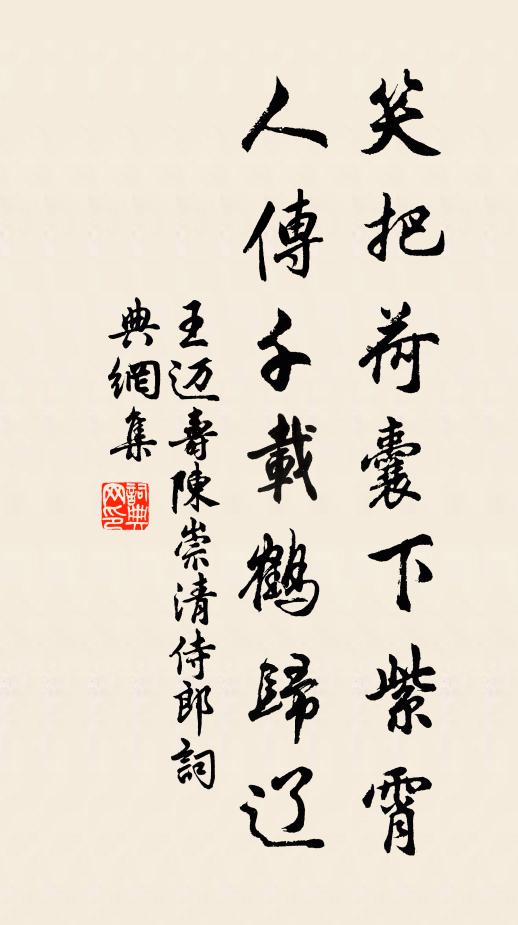 笑把荷囊下紫霄
人傳千載鶴歸辽
王迈壽陳崇清侍郎詞
典網集
詞典网印